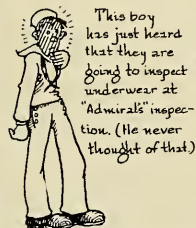 This boy
has just heard
that they are
going to inspect
underwear at
"Admiral's" inspec-
tion. (He never
thought of that.)